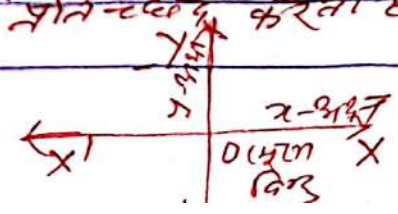 प्रतिच्छेद करता है
Y
y-अक्ष
x-अक्ष
X' O (मूल X
बिन्दु